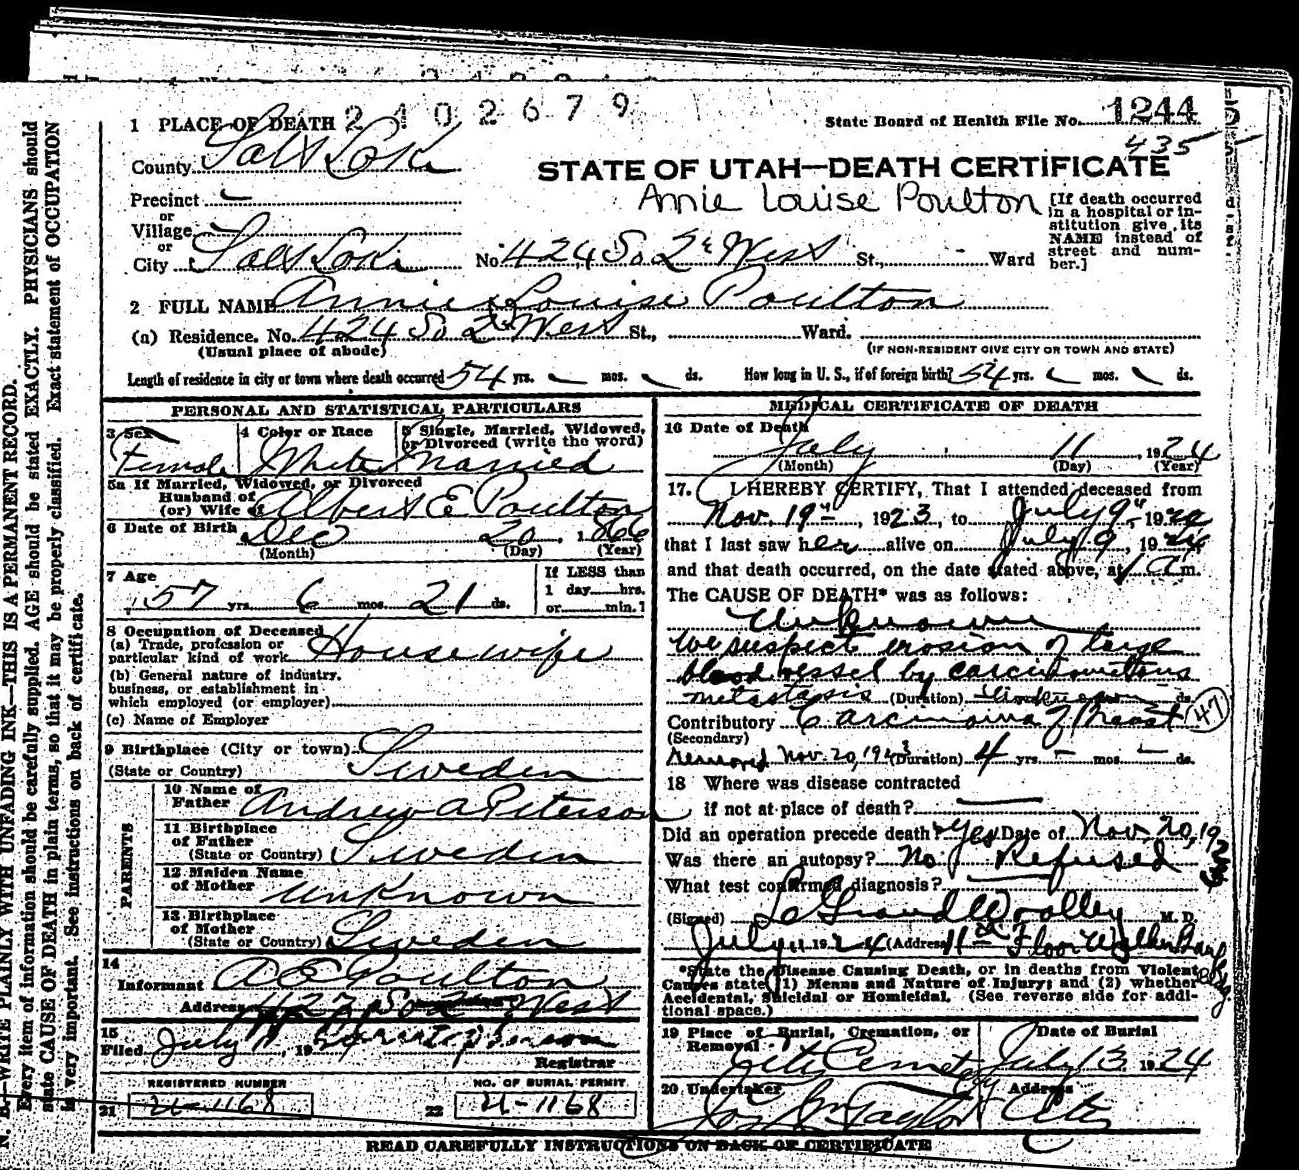 2402679
1 PLACE OF DEATH
State Board of Health File No. 1244
435
County Salt Lake
STATE OF UTAH—DEATH CERTIFICATE
Annie Louise Poulton
Precinct
or
Village
or
City Salt Lake No. 424 So 2d West St., Ward
[If death occurred
in a hospital or in-
stitution give its
NAME instead of
street and num-
ber.]
2 FULL NAME Annie Louise Poulton
(a) Residence. No. 424 So 2d West St., Ward.
(Usual place of abode) (IF NON-RESIDENT GIVE CITY OR TOWN AND STATE)
Length of residence in city or town where death occurred 54 yrs. mos. ds. How long in U. S., if of foreign birth? 54 yrs. mos. ds.
PERSONAL AND STATISTICAL PARTICULARS
3 Sex 4 Color or Race 5 Single, Married, Widowed,
or Divorced (write the word)
Female White Married
5a If Married, Widowed, or Divorced
Husband of
(or) Wife of Albert E Poulton
6 Date of Birth Dec 20, 1866
(Month) (Day) (Year)
7 Age If LESS than
57 yrs. 6 mos. 21 ds. 1 day hrs.
or min.?
8 Occupation of Deceased
(a) Trade, profession or
particular kind of work Housewife
(b) General nature of industry,
business, or establishment in
which employed (or employer)
(c) Name of Employer
9 Birthplace (City or town)
(State or Country) Sweden
PARENTS
10 Name of
Father Andrew A Peterson
11 Birthplace
of Father
(State or Country) Sweden
12 Maiden Name
of Mother unknown
13 Birthplace
of Mother
(State or Country) Sweden
14
Informant A E Poulton
Address 427 So 2 West
15
Filed July 11, 19
Registrar
REGISTERED NUMBER NO. OF BURIAL PERMIT
21 U-1168 22 U-1168
MEDICAL CERTIFICATE OF DEATH
16 Date of Death
July 11, 1924
(Month) (Day) (Year)
17. I HEREBY CERTIFY, That I attended deceased from
Nov. 19th, 1923, to July 9th, 1924
that I last saw her alive on July 9, 1924
and that death occurred, on the date stated above, at 1 a m.
The CAUSE OF DEATH* was as follows:
Unknown
We suspect erosion of large
blood vessel by carcinomatous
metastasis (Duration) Unknown ds.
Contributory Carcinoma of breast 47
(Secondary)
removed Nov. 20, 1923 (Duration) 4 yrs. mos. ds.
18 Where was disease contracted
if not at place of death?
Did an operation precede death? Yes Date of Nov. 20, 1923
Was there an autopsy? No. Refused
What test confirmed diagnosis?
(Signed) LeGrand Woolley M. D.
July 11 1924 (Address) 11th Floor Walker Bank Bldg
*State the Disease Causing Death, or in deaths from Violent
Causes state (1) Means and Nature of Injury; and (2) whether
Accidental, Suicidal or Homicidal. (See reverse side for addi-
tional space.)
19 Place of Burial, Cremation, or Date of Burial
Removal
City Cemetery July 13 1924
20 Undertaker Address
Jos Wm Taylor City
READ CAREFULLY INSTRUCTIONS ON BACK OF CERTIFICATE
N. B.—WRITE PLAINLY WITH UNFADING INK—THIS IS A PERMANENT RECORD.
Every item of information should be carefully supplied. AGE should be stated EXACTLY. PHYSICIANS should
state CAUSE OF DEATH in plain terms, so that it may be properly classified. Exact statement of OCCUPATION
is very important. See instructions on back of certificate.